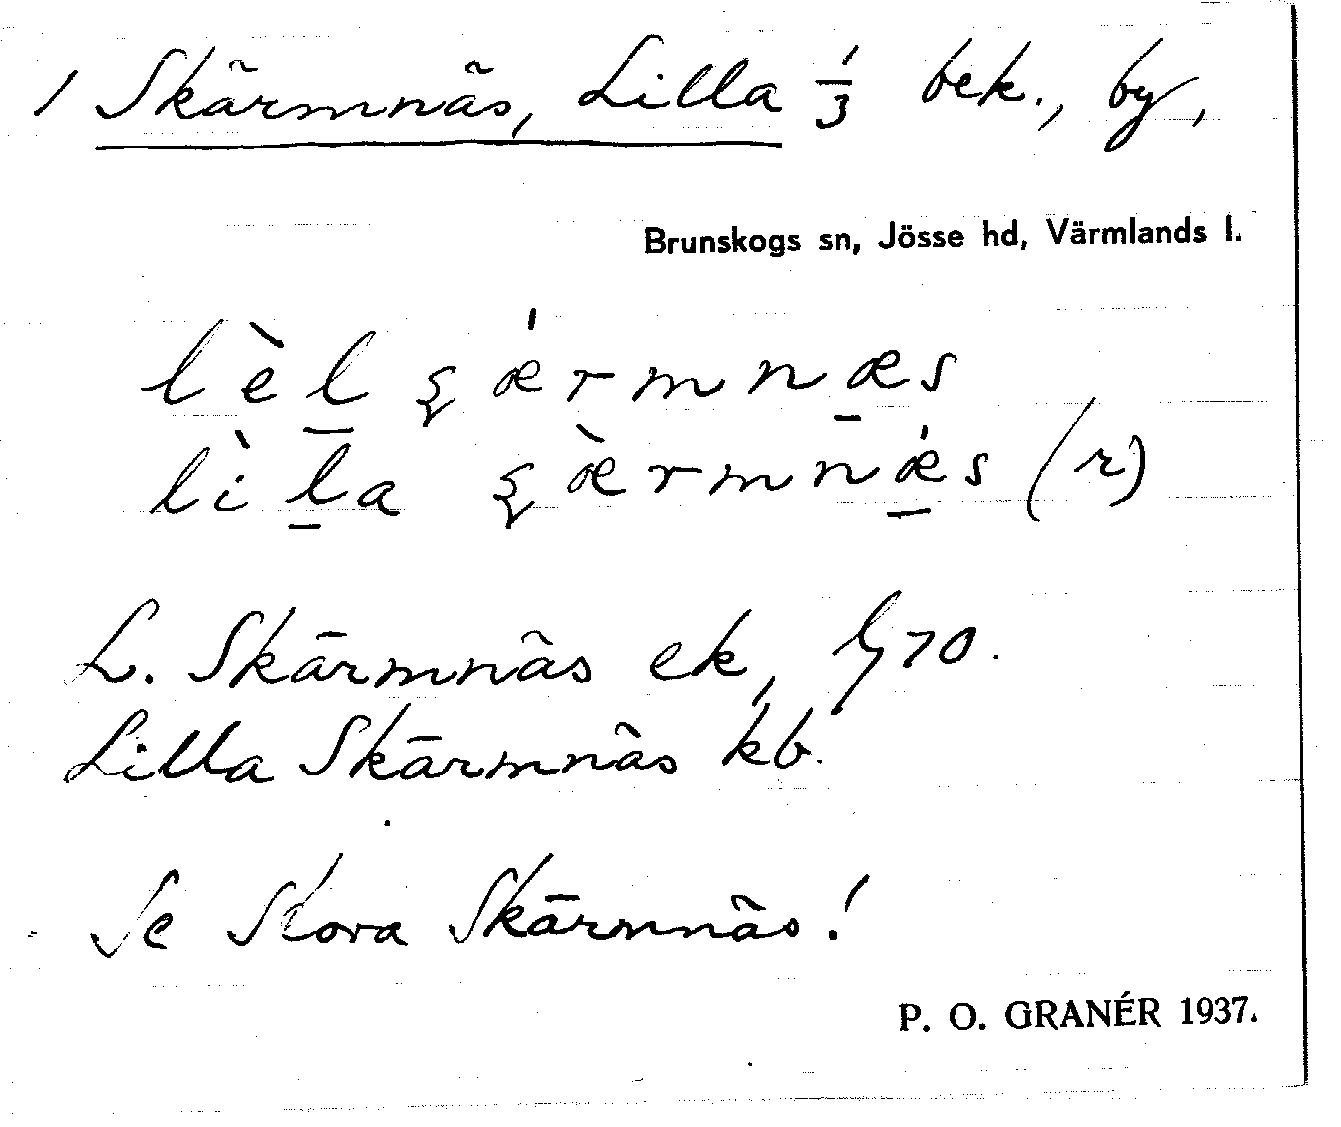 1 Skärmnäs, Lilla 1/3 bek., by,
Brunskogs sn, Jösse hd, Värmlands l.
lèl ʂǽrmnæs
lìla ʂæ̀rmnǽs (r)
L. Skärmnäs ek, G 70.
Lilla Skärmnäs kb.
Se Stora Skärmnäs!
P. O. GRANÉR 1937.